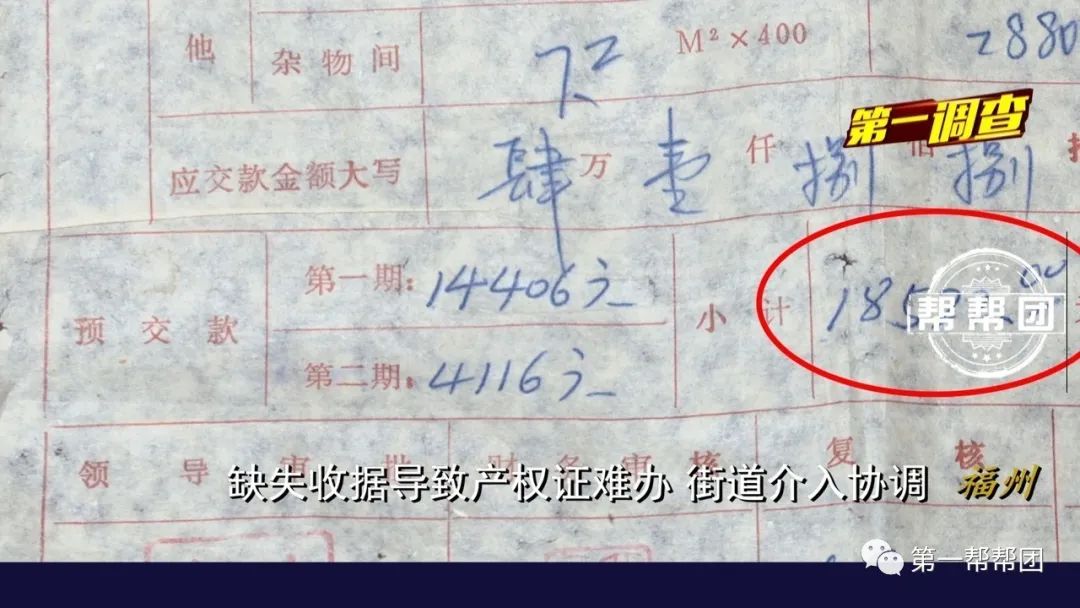 他 杂物间 7.2 M²×400 2880
第一调查
应交款金额大写 肆万壹仟捌佰捌
预交款 第一期：14406元 小计
第二期：4116元
帮帮团
领导审批 财务审核 复核
缺失收据导致产权证难办 街道介入协调 福州
第一帮帮团